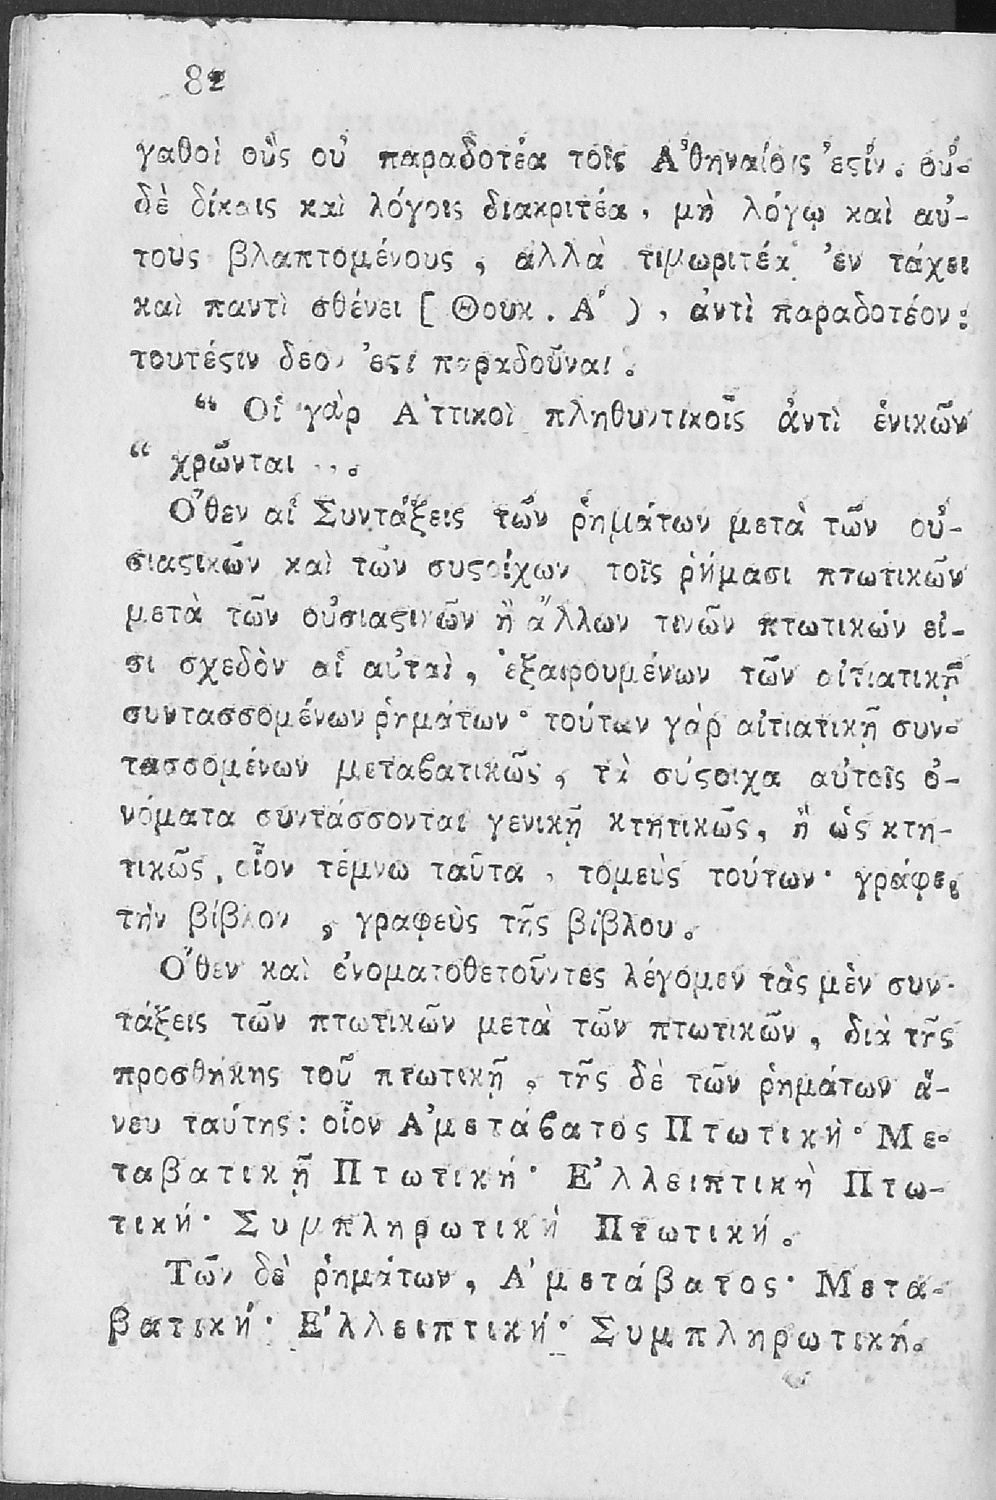 82
γαθοὶ οὓς οὐ παραδοτέα τοῖς Ἀθηναίοις ἐςίν. οὐ-
δὲ δίκαις καὶ λόγοις διακριτέα, μὴ λόγῳ καὶ αὐ-
τους βλαπτομένους, ἀλλὰ τιμωριτέα ἐν τάχει
καὶ παντὶ σθένει [Θουκ. Α΄), ἀντὶ παραδοτέον:
τουτέςιν δέον ἐςὶ παραδοῦναι.
“ Οἱ γὰρ Ἀττικοὶ πληθυντικοῖς ἀντὶ ἑνικῶν
“ χρῶνται ...
Ὅθεν αἱ Συντάξεις τῶν ῥημάτων μετὰ τῶν οὐ-
σιαςικῶν καὶ τῶν συςοίχων τοῖς ῥήμασι πτωτικῶν
μετὰ τῶν οὐσιαςικῶν ἢ ἄλλων τινῶν πτωτικών εἰ-
σι σχεδὸν αἱ αὐταὶ, ἐξαιρουμένων τῶν αἰτιατικῇ
συντασσομένων ῥημάτων· τούτων γὰρ αἰτιατικῇ συν-
τασσομένων μεταβατικῶς, τὰ σύςοιχα αὐτοῖς ὀ-
νόματα συντάσσονται γενικῇ κτητικῶς, ἢ ὡς κτη-
τικῶς, οἷον τέμνω ταῦτα, τομεὺς τούτων· γράφει
τὴν βίβλον, γραφεὺς τῆς βίβλου.
Ὅθεν καὶ ὀνοματοθετοῦντες λέγομεν τὰς μὲν συν-
τάξεις τῶν πτωτικῶν μετὰ τῶν πτωτικῶν, διὰ τῆς
προσθήκης τοῦ πτωτικῇ, τῆς δὲ τῶν ῥημάτων ἄ-
νευ ταύτης: οἷον Ἀμετάβατος Πτωτική· Με-
ταβατικῇ Πτωτική· Ἐλλειπτικὴ Πτω-
τική· Συμπληρωτική Πτωτική.
Τῶν δὲ ῥημάτων, Ἀμετάβατος· Μετα-
βατική· Ἐλλειπτική· Συμπληρωτική.